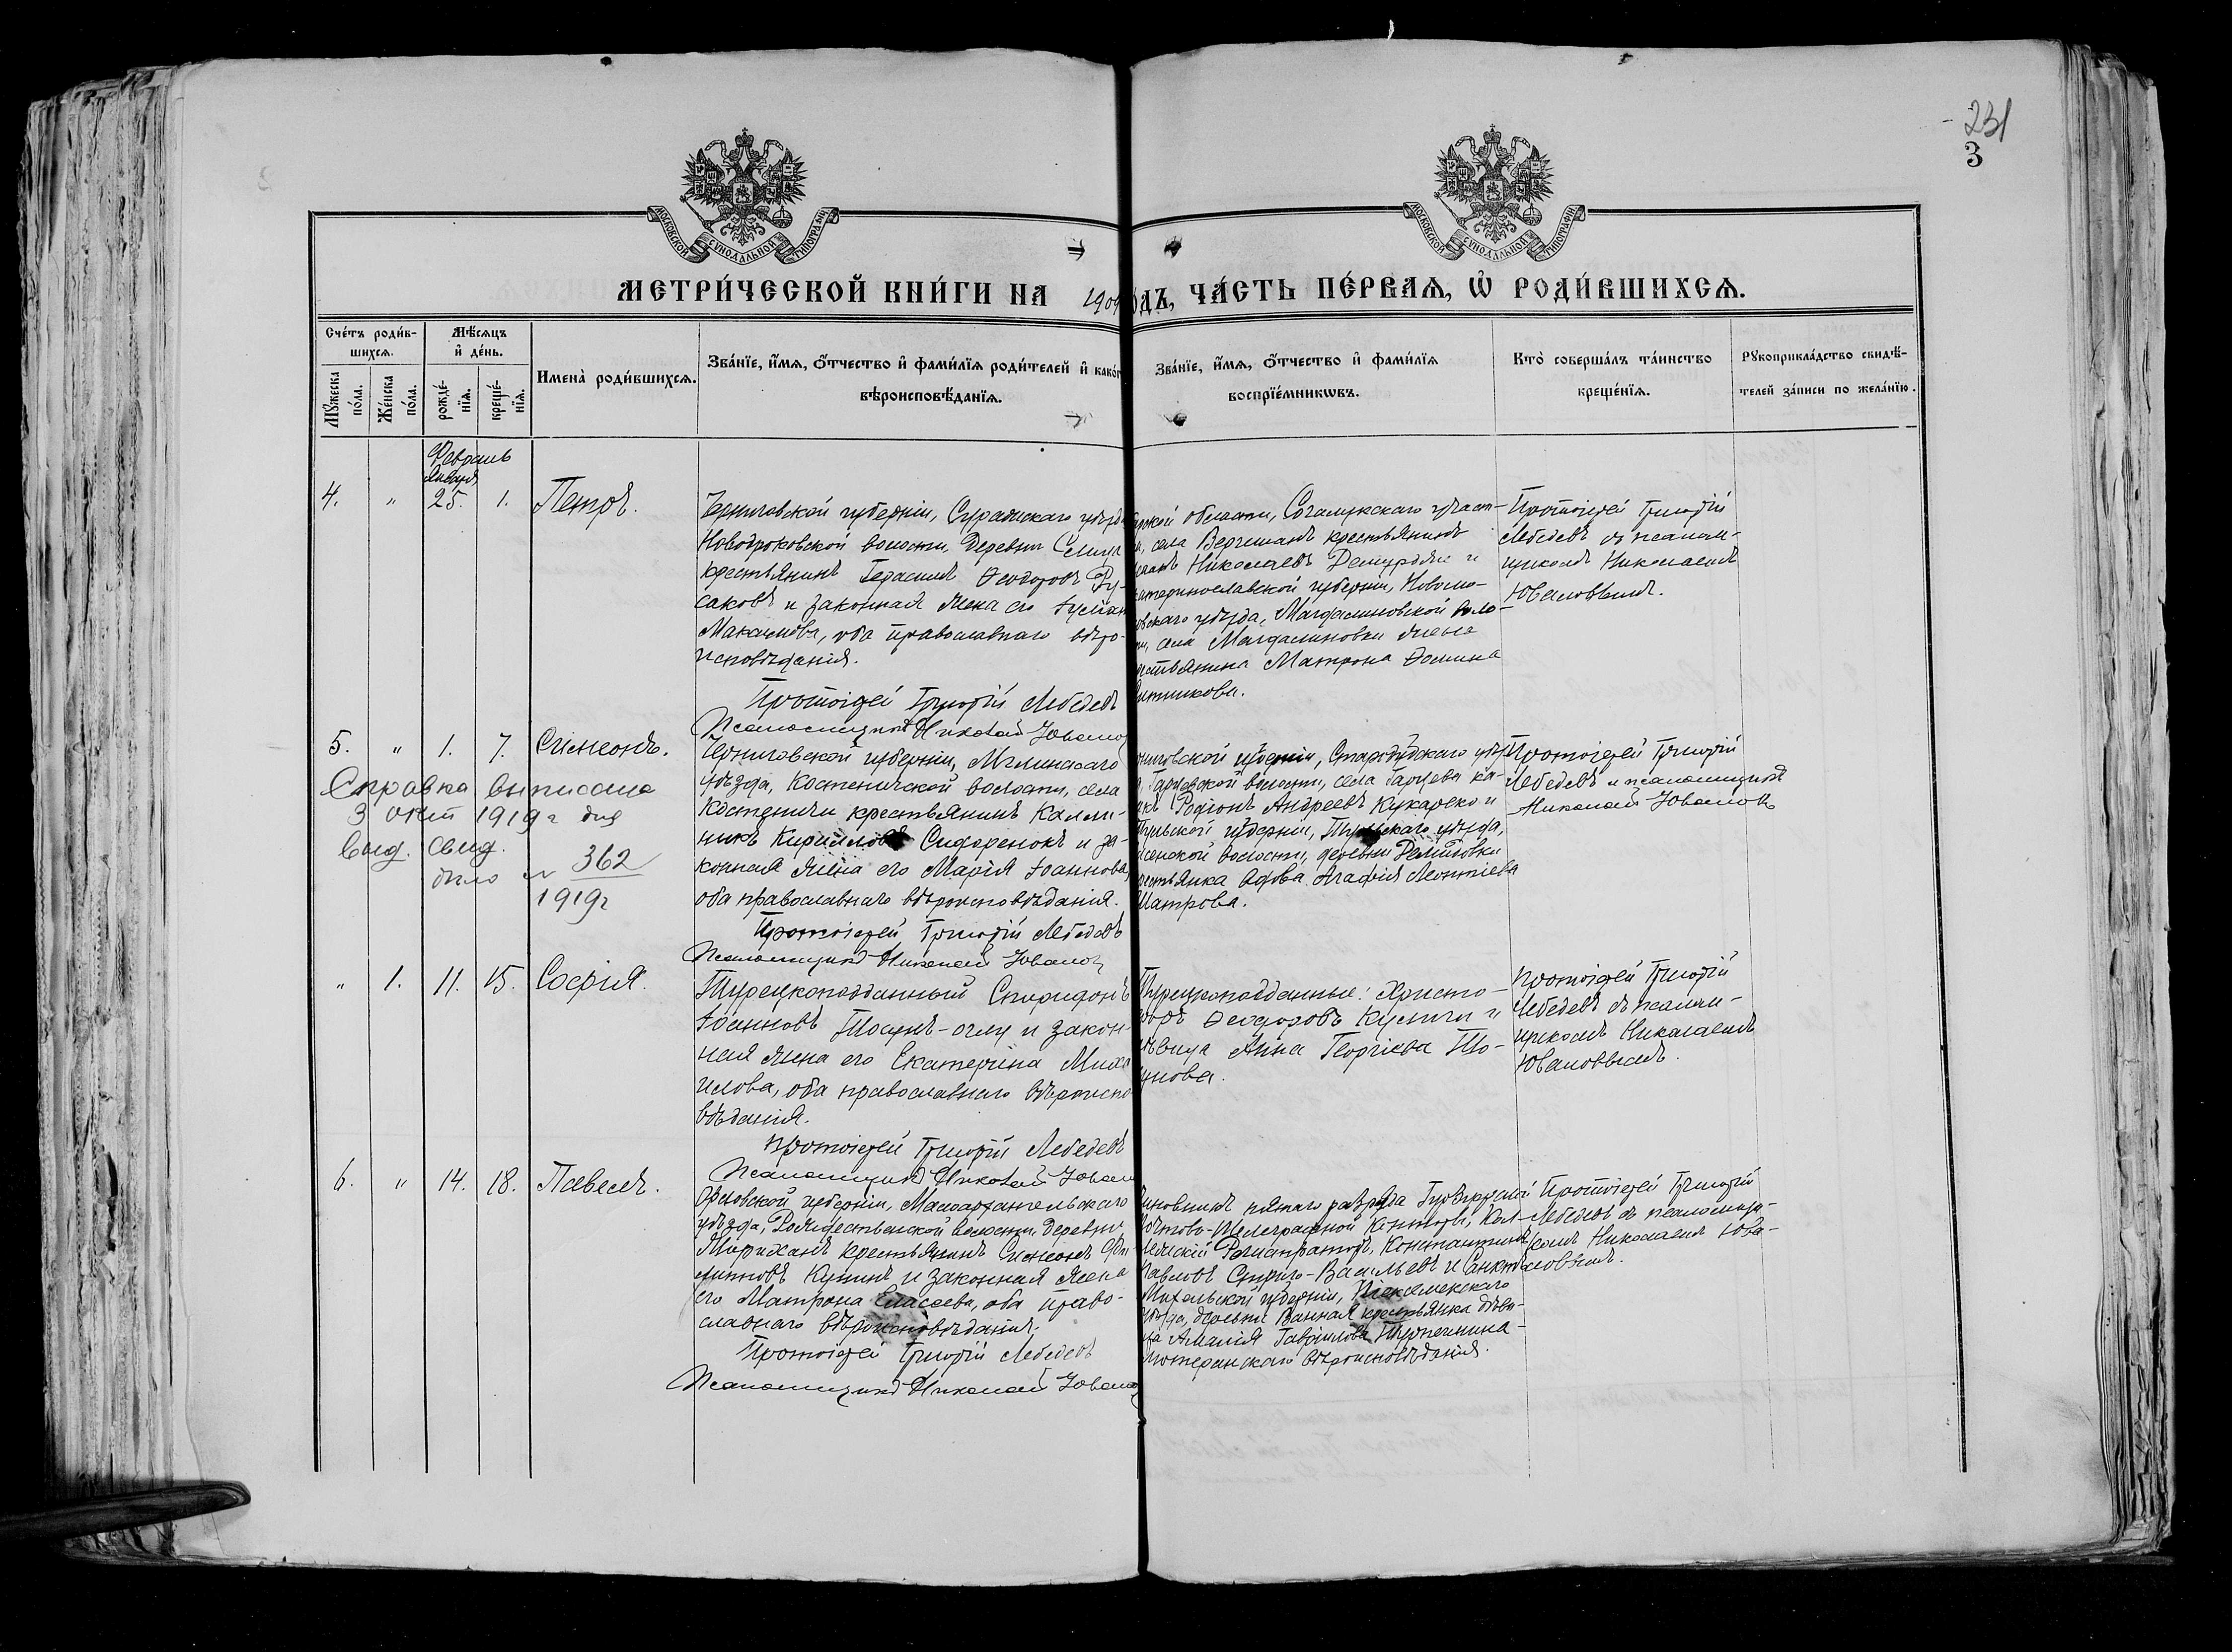 231
3
МОСКОВСКОЙ СѴНОДАЛЬНОЙ ТИПОГРАФІИ
МОСКОВСКОЙ СѴНОДАЛЬНОЙ ТИПОГРАФІИ
МЕТРИ́ЧЕСКОЙ КНИ́ГИ НА 1909
ДЪ, ЧА́СТЬ ПЕ́РВАѦ, Ѡ҆ РОДИ́ВШИХСѦ.
Сче́тъ роди́в-
шихсѧ.
Мѣ́сѧцъ
и҆ де́нь.
Мꙋ́жеска
по́ла.
Же́нска
по́ла.
рожде́-
нїѧ.
креще́-
нїѧ.
Имена̀ роди́вшихсѧ.
Зва́нїе, и҆́мѧ, ѻ҆́тчество и҆ фами́лїѧ роди́телей и҆ како́г
вѣроисповѣ́данїѧ.
Зва́нїе, и҆́мѧ, ѻ҆́тчество и҆ фами́лїѧ
воспрїе́мникѡвъ.
Кто̀ соверша́лъ та́инство
креще́нїѧ.
Рꙋкоприкла́дство свидѣ́-
телей за́писи по жела́нїю.
Февраль
Января
4. " 25. 1. Петръ.
Черниговской губерніи, Суражскаго уѣзда
Новодроковской волости, деревни
крестьянинъ Герасимъ Ѳеодоровъ Ру-
саковъ и законная жена его
Макаимова, оба православнаго вѣро-
исповѣданія.
Протоіерей Григорій Лебедевъ
Псаломщикъ Николай Ювано
области, участ-
, села крестьянинъ
Николаевъ и
атеринославской губерніи, Новомо-
вскаго уѣзда, Магдалиновской воло-
ти, села Магдалиновки жена
естьянина Матрона Ѳомина
итникова.
Протоіерей Григорій
Лебедевъ съ псалом-
щикомъ Николаемъ
Ювановымъ.
5. " 1. 7. Сѵмеонъ.
Справка выписана
3 окт 1919 г для
выд. свид.
дѣло № 362
1919 г
Черниговской губерніи, Мглинскаго
уѣзда, Костеничской волости, села
Костеничи крестьянинъ Калли-
никъ Кирилловъ Сидоренокъ и за-
конная жена его Марія Іоаннова,
оба православнаго вѣроисповѣданія.
Протоіерей Григорій Лебедевъ
Псаломщикъ Николай Ювано
ниговской губерніи, Стародубскаго уѣз
Гарцевской волости, села Гарцева ка-
акъ Родіонъ Андреевъ Кукареко и
Тульской губерніи, Тульскаго уѣзда,
волости, деревни
рестьянка вдова Агафія Леонтіева
Шатрова.
Протоіерей Григорій
Лебедевъ и псаломщикъ
Николай Ювановъ
" 1. 11. 15. Софія.
Турецкоподданный Спиридонъ
Іоанновъ Тосунъ-оглу и закон-
ная жена его Екатерина Миха
илова, оба православнаго вѣроиспо
вѣданія.
Протоіерей Григорій Лебедевъ
Псаломщикъ Николай Юван
Турецкоподданные: Христо-
форъ Ѳеодоровъ и
дѣвица Анна Георгіева То-
унова.
Протоіерей Григорій
Лебедевъ съ псалом-
щикомъ Николаемъ
Ювановымъ.
6. " 14. 18. Павелъ.
Орловской губерніи, Малоархангельскаго
уѣзда, Рождественской волости, деревни
крестьянинъ Сѵмеонъ Фи
липповъ Купинъ и законная жена
его Матрона Елисеева, оба право-
славнаго вѣроисповѣданія.
Протоіерей Григорій Лебедевъ
Псаломщикъ Николай Ювано
иновникъ пятаго разряда
Почтово-Телеграфной Конторы, Кол-
лежскій Регистраторъ, Константинъ
Павловъ Стриго-Васильевъ и Санктъ
Михельской губерніи, Піексемекскаго
уѣзда, деревни Ванная крестьянка дѣви-
ца Амалія Гавріилова
лютеранскаго вѣроисповѣданія.
Протоіерей Григорій
Лебедевъ съ псаломщи-
комъ Николаемъ Юва-
новымъ.